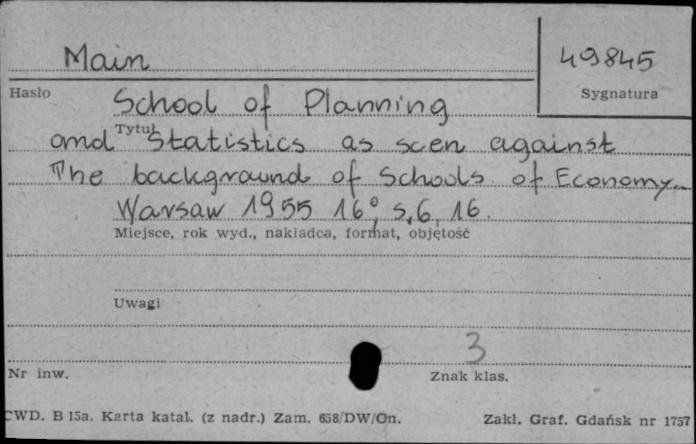 Main
49845
Hasło
Sygnatura
School of Planning
Tytuł
and Statistics as scen against
The background of Schools of Economy.
Warsaw 1955 16°, s. 6, 16.
Miejsce, rok wyd., nakładca, format, objętość
Uwagi
3
Nr inw.
Znak klas.
CWD. B 15a. Karta katal. (z nadr.) Zam. 658/DW/On.
Zakł. Graf. Gdańsk nr 1757